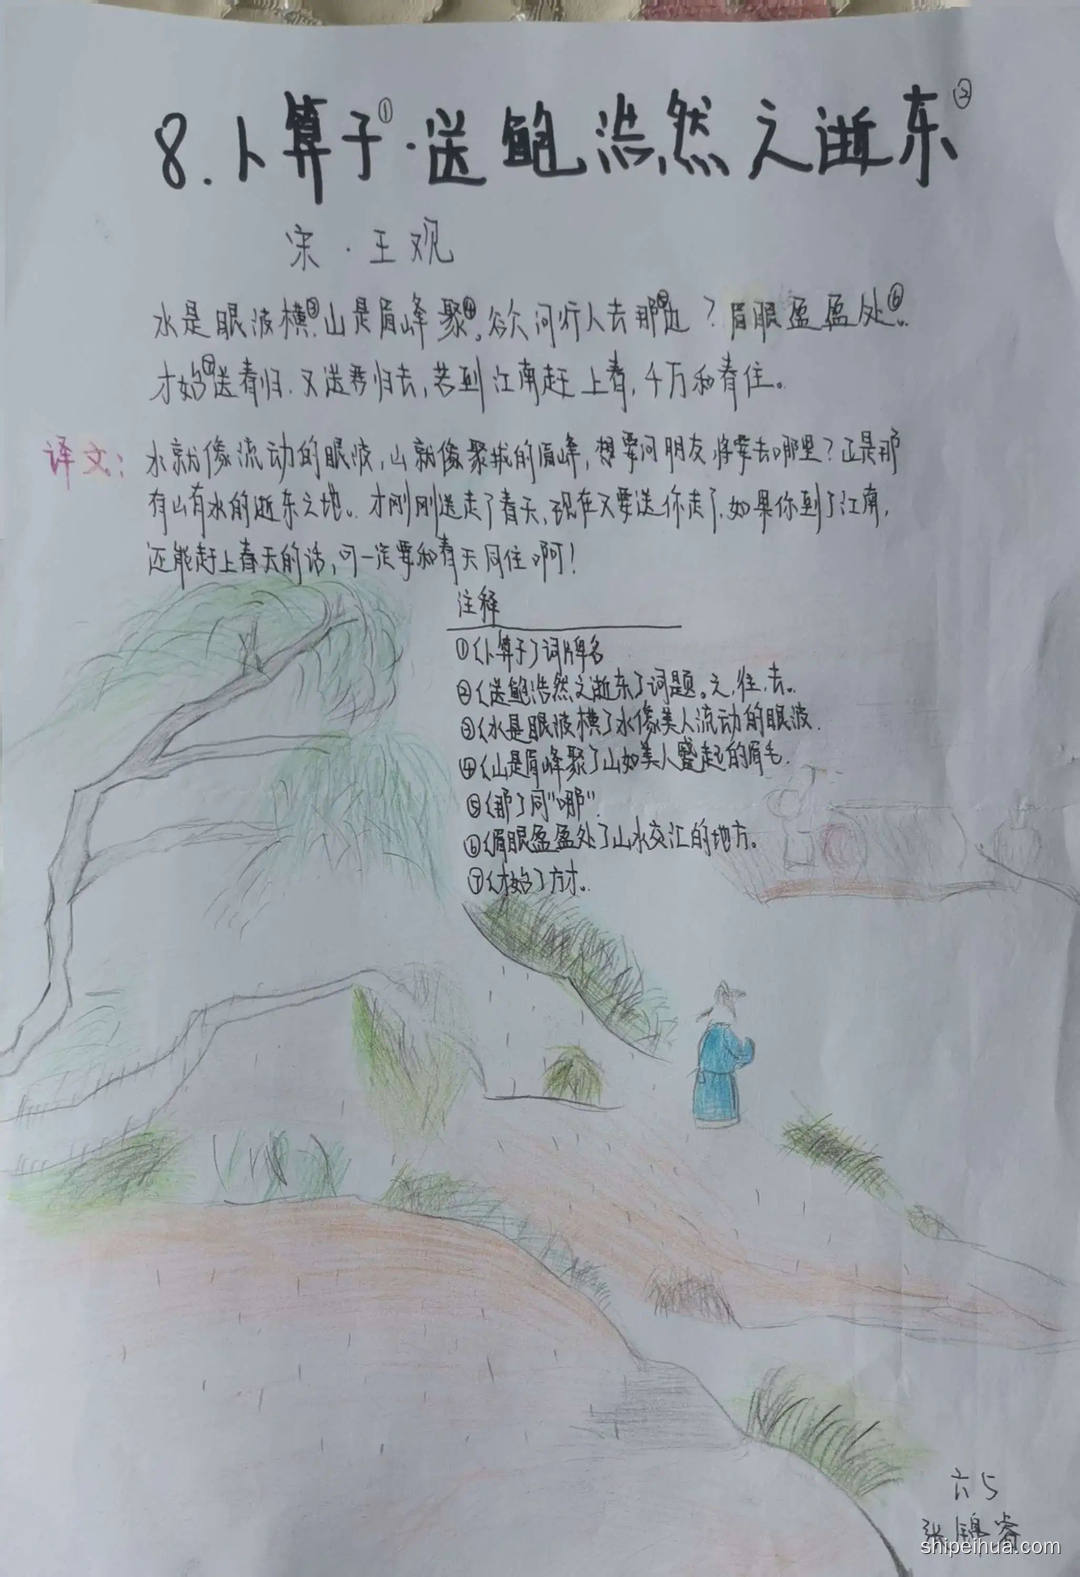 8.卜算子①·送鲍浩然之浙东②
宋·王观
水是眼波横③,山是眉峰聚④。欲问行人去那⑤边?眉眼盈盈处⑥。
才始⑦送春归,又送君归去,若到江南赶上春,千万和春住。
译文: 水就像流动的眼波,山就像聚拢的眉峰,想要问朋友将要去哪里?正是那
有山有水的浙东之地。才刚刚送走了春天,现在又要送你走了,如果你到了江南,
还能赶上春天的话,可一定要和春天同住啊!
注释
①〈卜算子〉词牌名
②〈送鲍浩然之浙东〉词题。之,往,去。
③〈水是眼波横〉水像美人流动的眼波.
④〈山是眉峰聚〉山如美人蹙起的眉毛.
⑤〈那〉同“哪”.
⑥〈眉眼盈盈处〉山水交汇的地方。
⑦〈才始〉方才。
六5
张锦睿
shipeihua.com